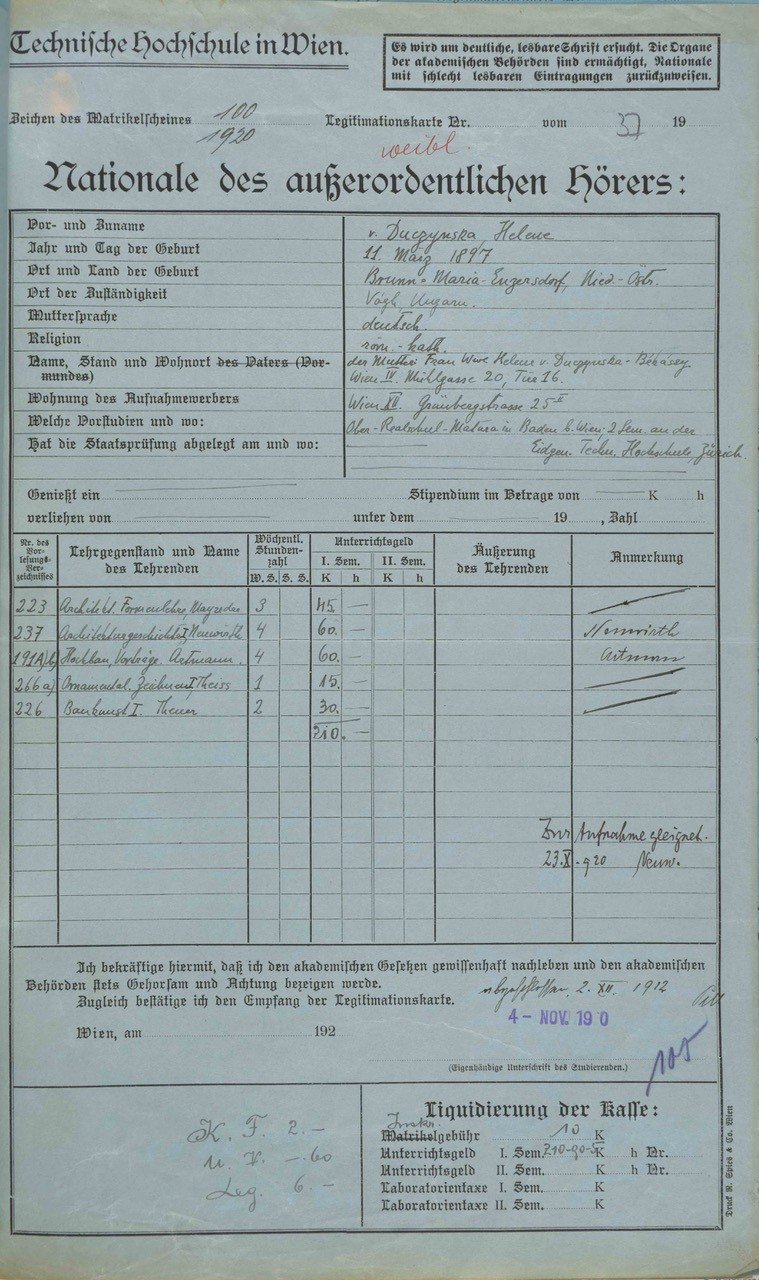 Technische Hochschule in Wien.
Es wird um deutliche, lesbare Schrift ersucht. Die Organe
der akademischen Behörden sind ermächtigt, Nationale
mit schlecht lesbaren Eintragungen zurückzuweisen.
Zeichen des Matrikelscheines 100 Legitimationskarte Nr. vom 37 19
1920
weibl.
Nationale des außerordentlichen Hörers:
Vor- und Zuname v. Duczynska, Helene
Jahr und Tag der Geburt 11. März 1897
Ort und Land der Geburt Brunn-Maria-Enzersdorf, Nied.-Östr.
Ort der Zuständigkeit Vágh Ungarn.
Muttersprache deutsch.
Religion röm.-kath.
Name, Stand und Wohnort des Vaters (Vor- der Mutter: Frau Wwe Helene v. Duczynska-Békásey
mundes) Wien IV. Mühlgasse 20, Tür 16.
Wohnung des Aufnahmewerbers Wien XII. Grünbergstrasse 25 II
Welche Vorstudien und wo: Ober-Realschul-Matura in Baden b. Wien; 2 Sem. an der
Hat die Staatsprüfung abgelegt am und wo: Eidgen. Techn. Hochschule, Zürich.
Genießt ein Stipendium im Betrage von K h
verliehen von unter dem 19 , Zahl
Nr. des Vorlesungs-Verzeichnisses
Lehrgegenstand und Name des Lehrenden
Wöchentl. Stundenzahl
W. S. S. S.
Unterrichtsgeld
I. Sem. II. Sem.
K h K h
Äußerung des Lehrenden
Anmerkung
223 Architekt. Formenlehre Mayreder 3 45. —
237 Architekturgeschichte I Neuwirth 4 60. — Neuwirth
191A)b) Hochbau, Vorträge. Artmann. 4 60. — Artmann
266a) Ornamental. Zeichnen I Theiss 1 15. —
226 Baukunst I. Theuer 2 30. —
210. —
Zur Aufnahme geeignet.
23. X. 920 Neuw.
Ich bekräftige hiermit, daß ich den akademischen Gesetzen gewissenhaft nachleben und den akademischen
Behörden stets Gehorsam und Achtung bezeigen werde.
Zugleich bestätige ich den Empfang der Legitimationskarte.
abgeschlossen, 2. XII. 1912
Wien, am 192
4- NOV. 19 0
(Eigenhändige Unterschrift des Studierenden.)
105
Liquidierung der Kasse:
Inskr.
Matrikelgebühr 10 K
Unterrichtsgeld I. Sem. K h Nr.
Unterrichtsgeld II. Sem. K h Nr.
Laboratorientaxe I. Sem. K
Laboratorientaxe II. Sem. K
K. F. 2.-
u. V. -.60
Leg. 6.-
Druck R. Spies & Co. Wien